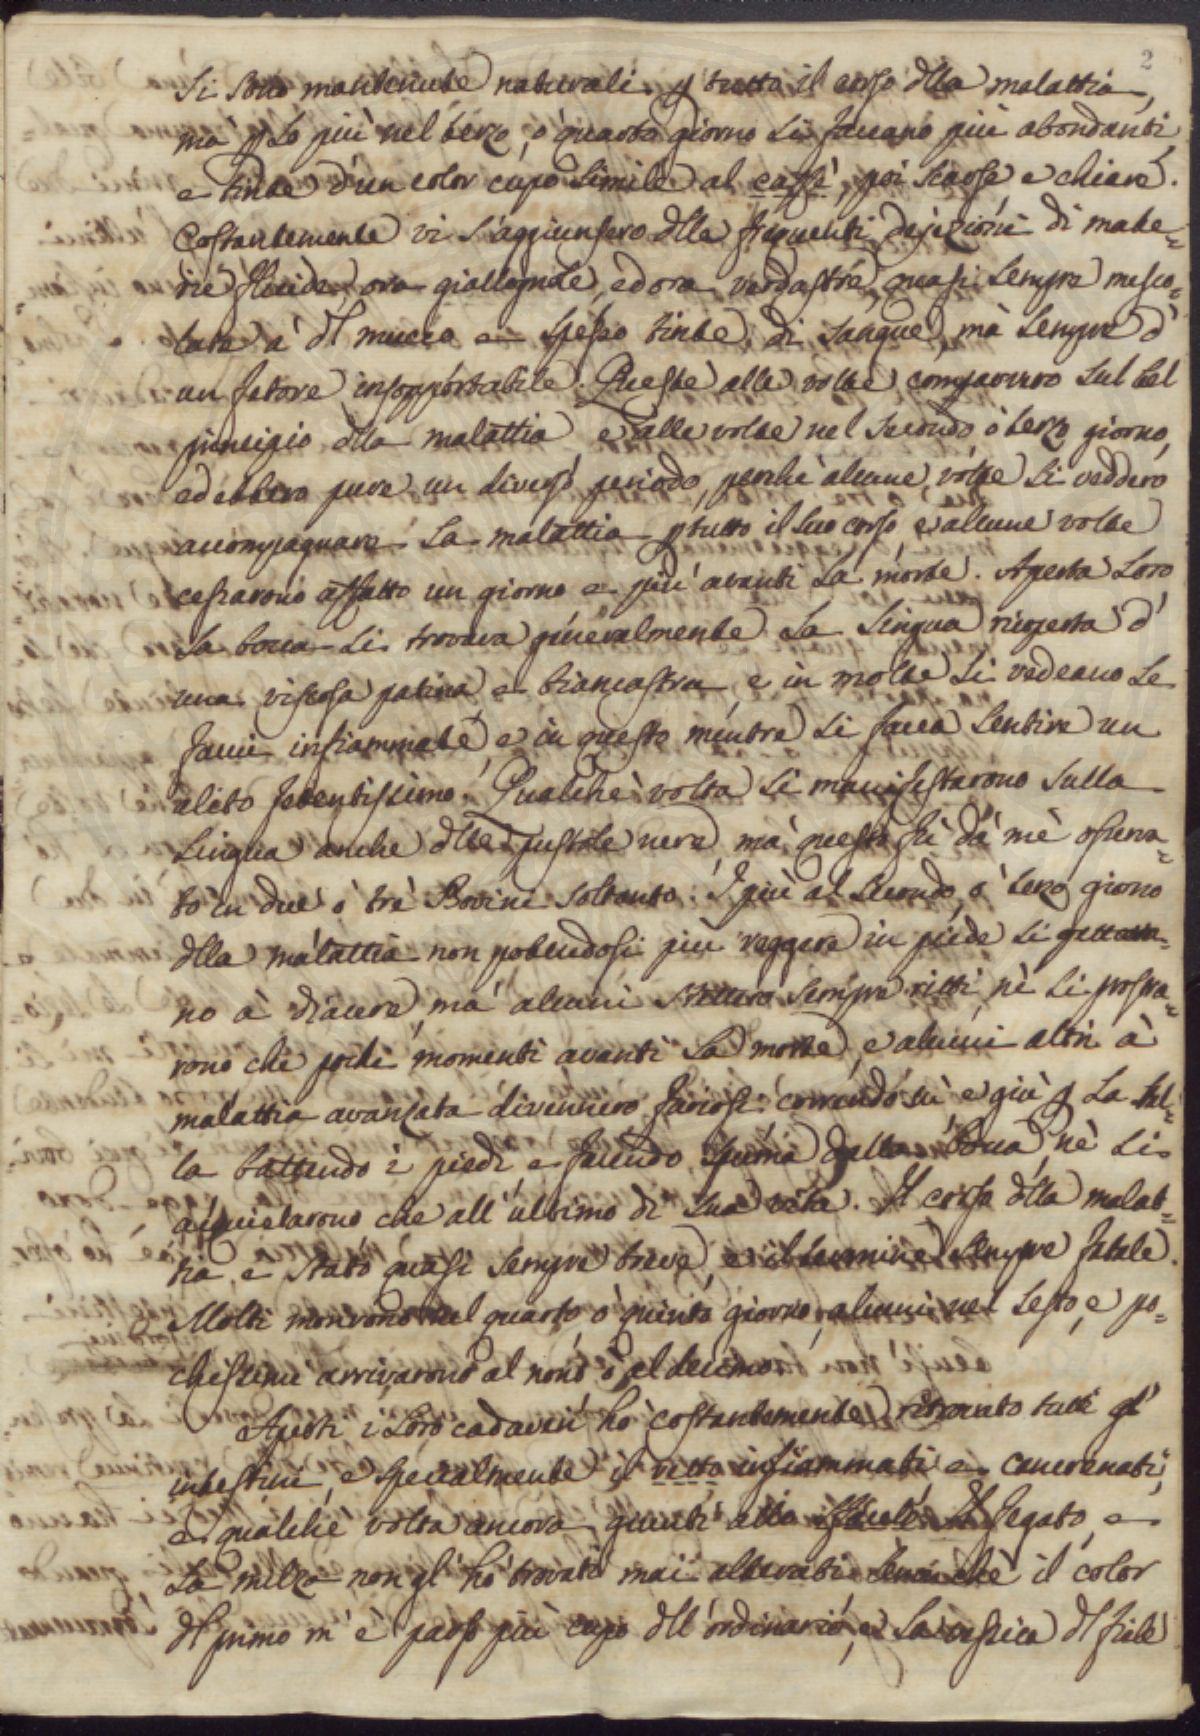 2
si sono mantenute naturali p tutto il corso dlla malattia,
mà p lo più nel terzo, o quarto giorno si faceano più abondanti
e tinte d'un color cupo simile al caffè, poi scarse e chiare.
Costantemente vi s'aggiunsero dlle frequenti dejezioni di mate=
rie fluide, ora giallognole, ed ora verdastre, quasi sempre misco=
late a dl mucco e spesso tinte di sangue, mà sempre d'
un fetore insopportabile. Queste alle volte comparvero sul bel
principio dlla malattia e alle volte nel secondo o terzo giorno,
ed ebbero pure un diverso periodo, perchè alcune volte si veddero
accompagnare la malattia p tutto il suo corso, e alcune volte
cessarono affatto un giorno e più avanti la morte. Aperta loro
la bocca si trovava generalmente la lingua ricoperta d'
una viscosa patina e biancastra, e in molte si vedeano le
fauci infiammate, e in questo mentre si facea sentire un
alito fetentissimo. Qualche volta si manifestarono sulla
lingua anche dlle pustole nere, mà questo fù dà mè osserva=
to in due ò trè Bovini soltanto. I più al secondo, o terzo giorno
dlla malattia non potendosi più reggere in piede si gettava=
no à diacere, mà alcuni stettero sempre ritti, nè si prostra=
rono che pochi momenti avanti la morte, e alcuni altri à
malattia avanzata divennero furiosi correndo sù e giù p la stal=
la battendo i piedi e facendo spuma dalla bocca nè si
acquietarono che all'ultimo di sua vita. Il corso dlla malat=
tia e stato quasi sempre breve, e il termine sempre fatale.
Molti morirono nel quarto, o quinto giorno, alcuni nel sesto, e po=
chissimi arrivarono al nono o al decimo.
Aperti i loro cadaveri hò costantemente ritrovato tutti gl'
intestini, e specialmente il retto infiammati e cancrenati,
e qualche volta ancora giunti allo sfacelo. Il fegato, e
la milza non gl'hò trovati mai alterati senonchè il color
dl primo m'è parso più cupo dll'ordinario, e la vessica dl fiele